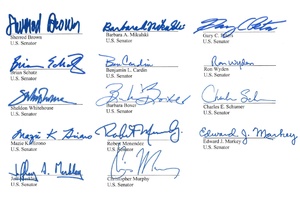 Sherrod Brown
Sherrod Brown
U.S. Senator
Barbara A. Mikulski
Barbara A. Mikulski
U.S. Senator
Gary C.
U.S. Senator
Brian Schatz
Brian Schatz
U.S. Senator
Ben Cardin
Benjamin L. Cardin
U.S. Senator
Ron Wyden
Ron Wyden
U.S. Senator
Sheldon Whitehouse
U.S. Senator
Barbara Boxer
Barbara Boxer
U.S. Senator
Charles E. Schumer
U.S. Senator
Mazie K. Hirono
Mazie K. Hirono
U.S. Senator
Robert Menendez
U.S. Senator
Edward J. Markey
Edward J. Markey
U.S. Senator
Jeffrey A. Merkley
U.S. Senator
Christopher Murphy
U.S. Senator